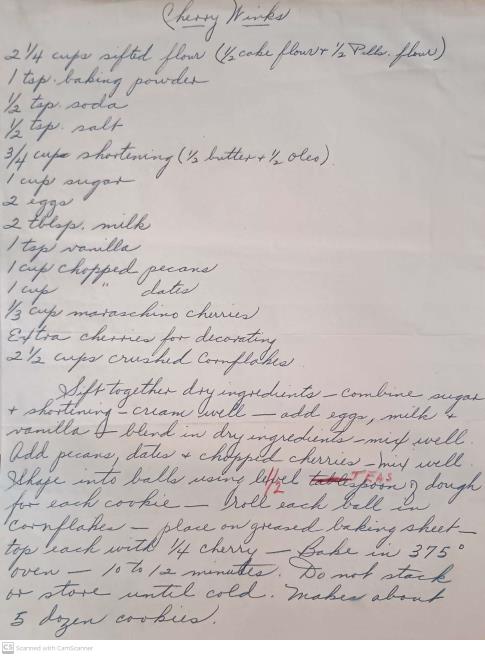 Cherry Winks
2 1/4 cups sifted flour (1/2 cake flour + 1/2 Pills. flour)
1 tsp. baking powder
1/2 tsp. soda
1/2 tsp. salt
3/4 cup shortening (1/2 butter + 1/2 oleo)
1 cup sugar
2 eggs
2 tblsp. milk
1 tsp vanilla
1 cup chopped pecans
1 cup " dates
1/3 cup maraschino cherries
Extra cherries for decorating
2 1/2 cups crushed Cornflakes
Sift together dry ingredients – combine sugar
+ shortening – cream well – add eggs, milk +
vanilla + blend in dry ingredients – mix well.
Add pecans, dates + chopped cherries – mix well.
Shape into balls using level tablespoon TEAS of dough
1/2
for each cookie – roll each ball in
Cornflakes – place on greased baking sheet –
top each with 1/4 cherry – Bake in 375°
oven – 10 to 12 minutes. Do not stack
or store until cold. Makes about
5 dozen cookies.
CS Scanned with CamScanner